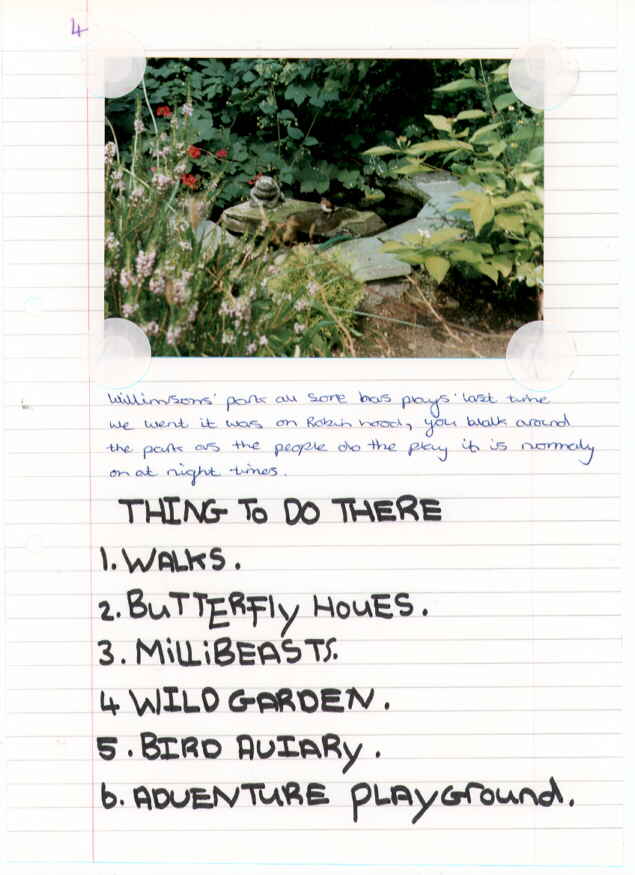 4
Willimsons' park au sore has plays last time
we went it was on Robin hood, you walk around
the park as the people do the play it is normaly
on at night times.
THING TO DO THERE
1. WALKS.
2. BuTTERFly HOUES.
3. MiLLiBEASTS.
4 WILD GARDEN.
5. BIRD AVIARY.
6. ADVENTURE PLAYGround.